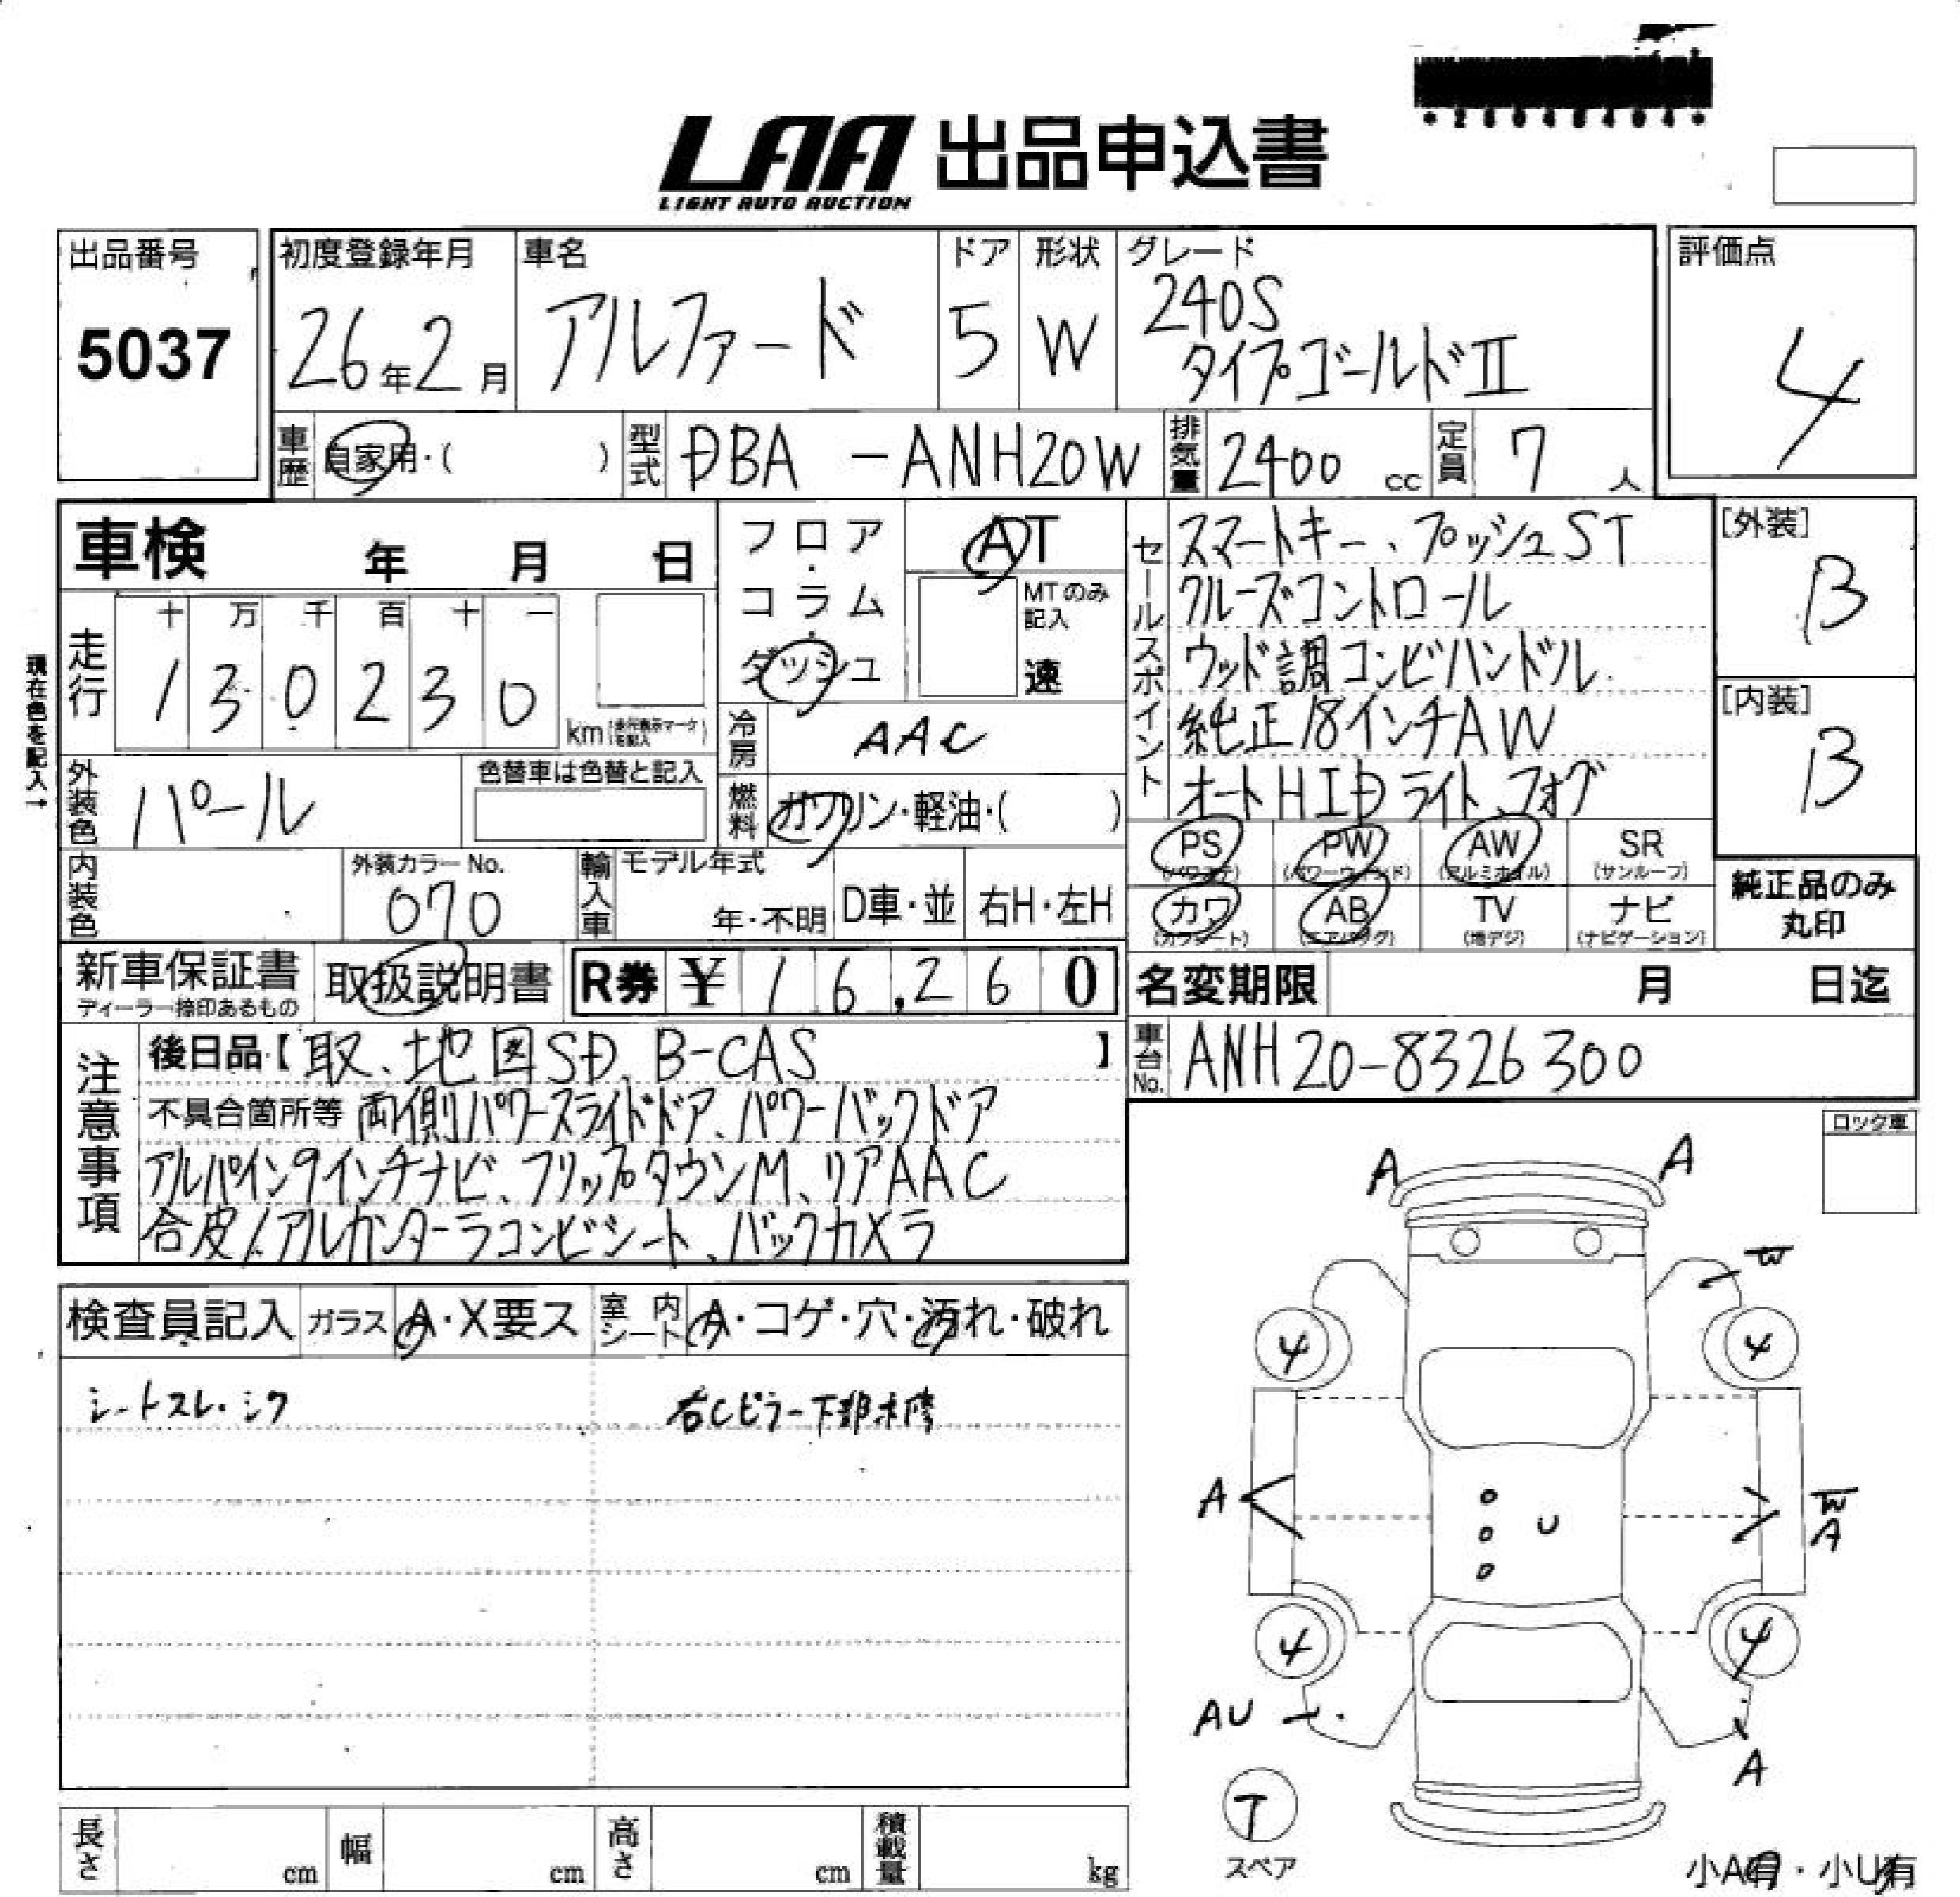 LAA 出品申込書
LIGHT AUTO AUCTION
出品番号
5037
初度登録年月
26年2月
車名
アルファード
ドア
5
形状
W
グレード
240S
タイプゴールドⅡ
評価点
4
車歴 自家用・( )
型式 DBA -ANH20W
排気量 2400 cc
定員 7 人
車検 年 月 日
現在色を記入→
走行
十 万 千 百 十 一
1 3 0 2 3 0
km
フロア・コラム・ダッシュ
AT
MTのみ記入
速
冷房 AAC
燃料 ガソリン・軽油・( )
外装色 パール
色替車は色替と記入
内装色
外装カラーNo.
070
輸入車
モデル年式
年・不明
D車・並
右H・左H
セールスポイント
スマートキー、プッシュST
クルーズコントロール
ウッド調コンビハンドル
純正18インチAW
オートHIDライト、フォグ
[外装]
B
[内装]
B
PS (パワステ)
PW (パワーウィンド)
AW (アルミホイル)
SR (サンルーフ)
カワ (カワシート)
AB (エアバッグ)
TV (地デジ)
ナビ (ナビゲーション)
純正品のみ
丸印
新車保証書
ディーラー捺印あるもの
取扱説明書
R券 ¥ 16,260
名変期限 月 日迄
車台No. ANH20-8326300
注意事項
後日品【取、地図SD、B-CAS】
不具合箇所等 両側パワースライドドア、パワーバックドア
アルパイン9インチナビ、フリップダウンM、リアAAC
合皮/アルカンターラコンビシート、バックカメラ
ロック車
検査員記入
ガラス A・X要ス
室内シート A・コゲ・穴・汚れ・破れ
シートスレ・シワ
右Cピラー下部未修
A
A
W
4
4
A
U
W
A
4
4
AU
A
T
スペア
小A有・小U有
長さ cm
幅 cm
高さ cm
積載量 kg